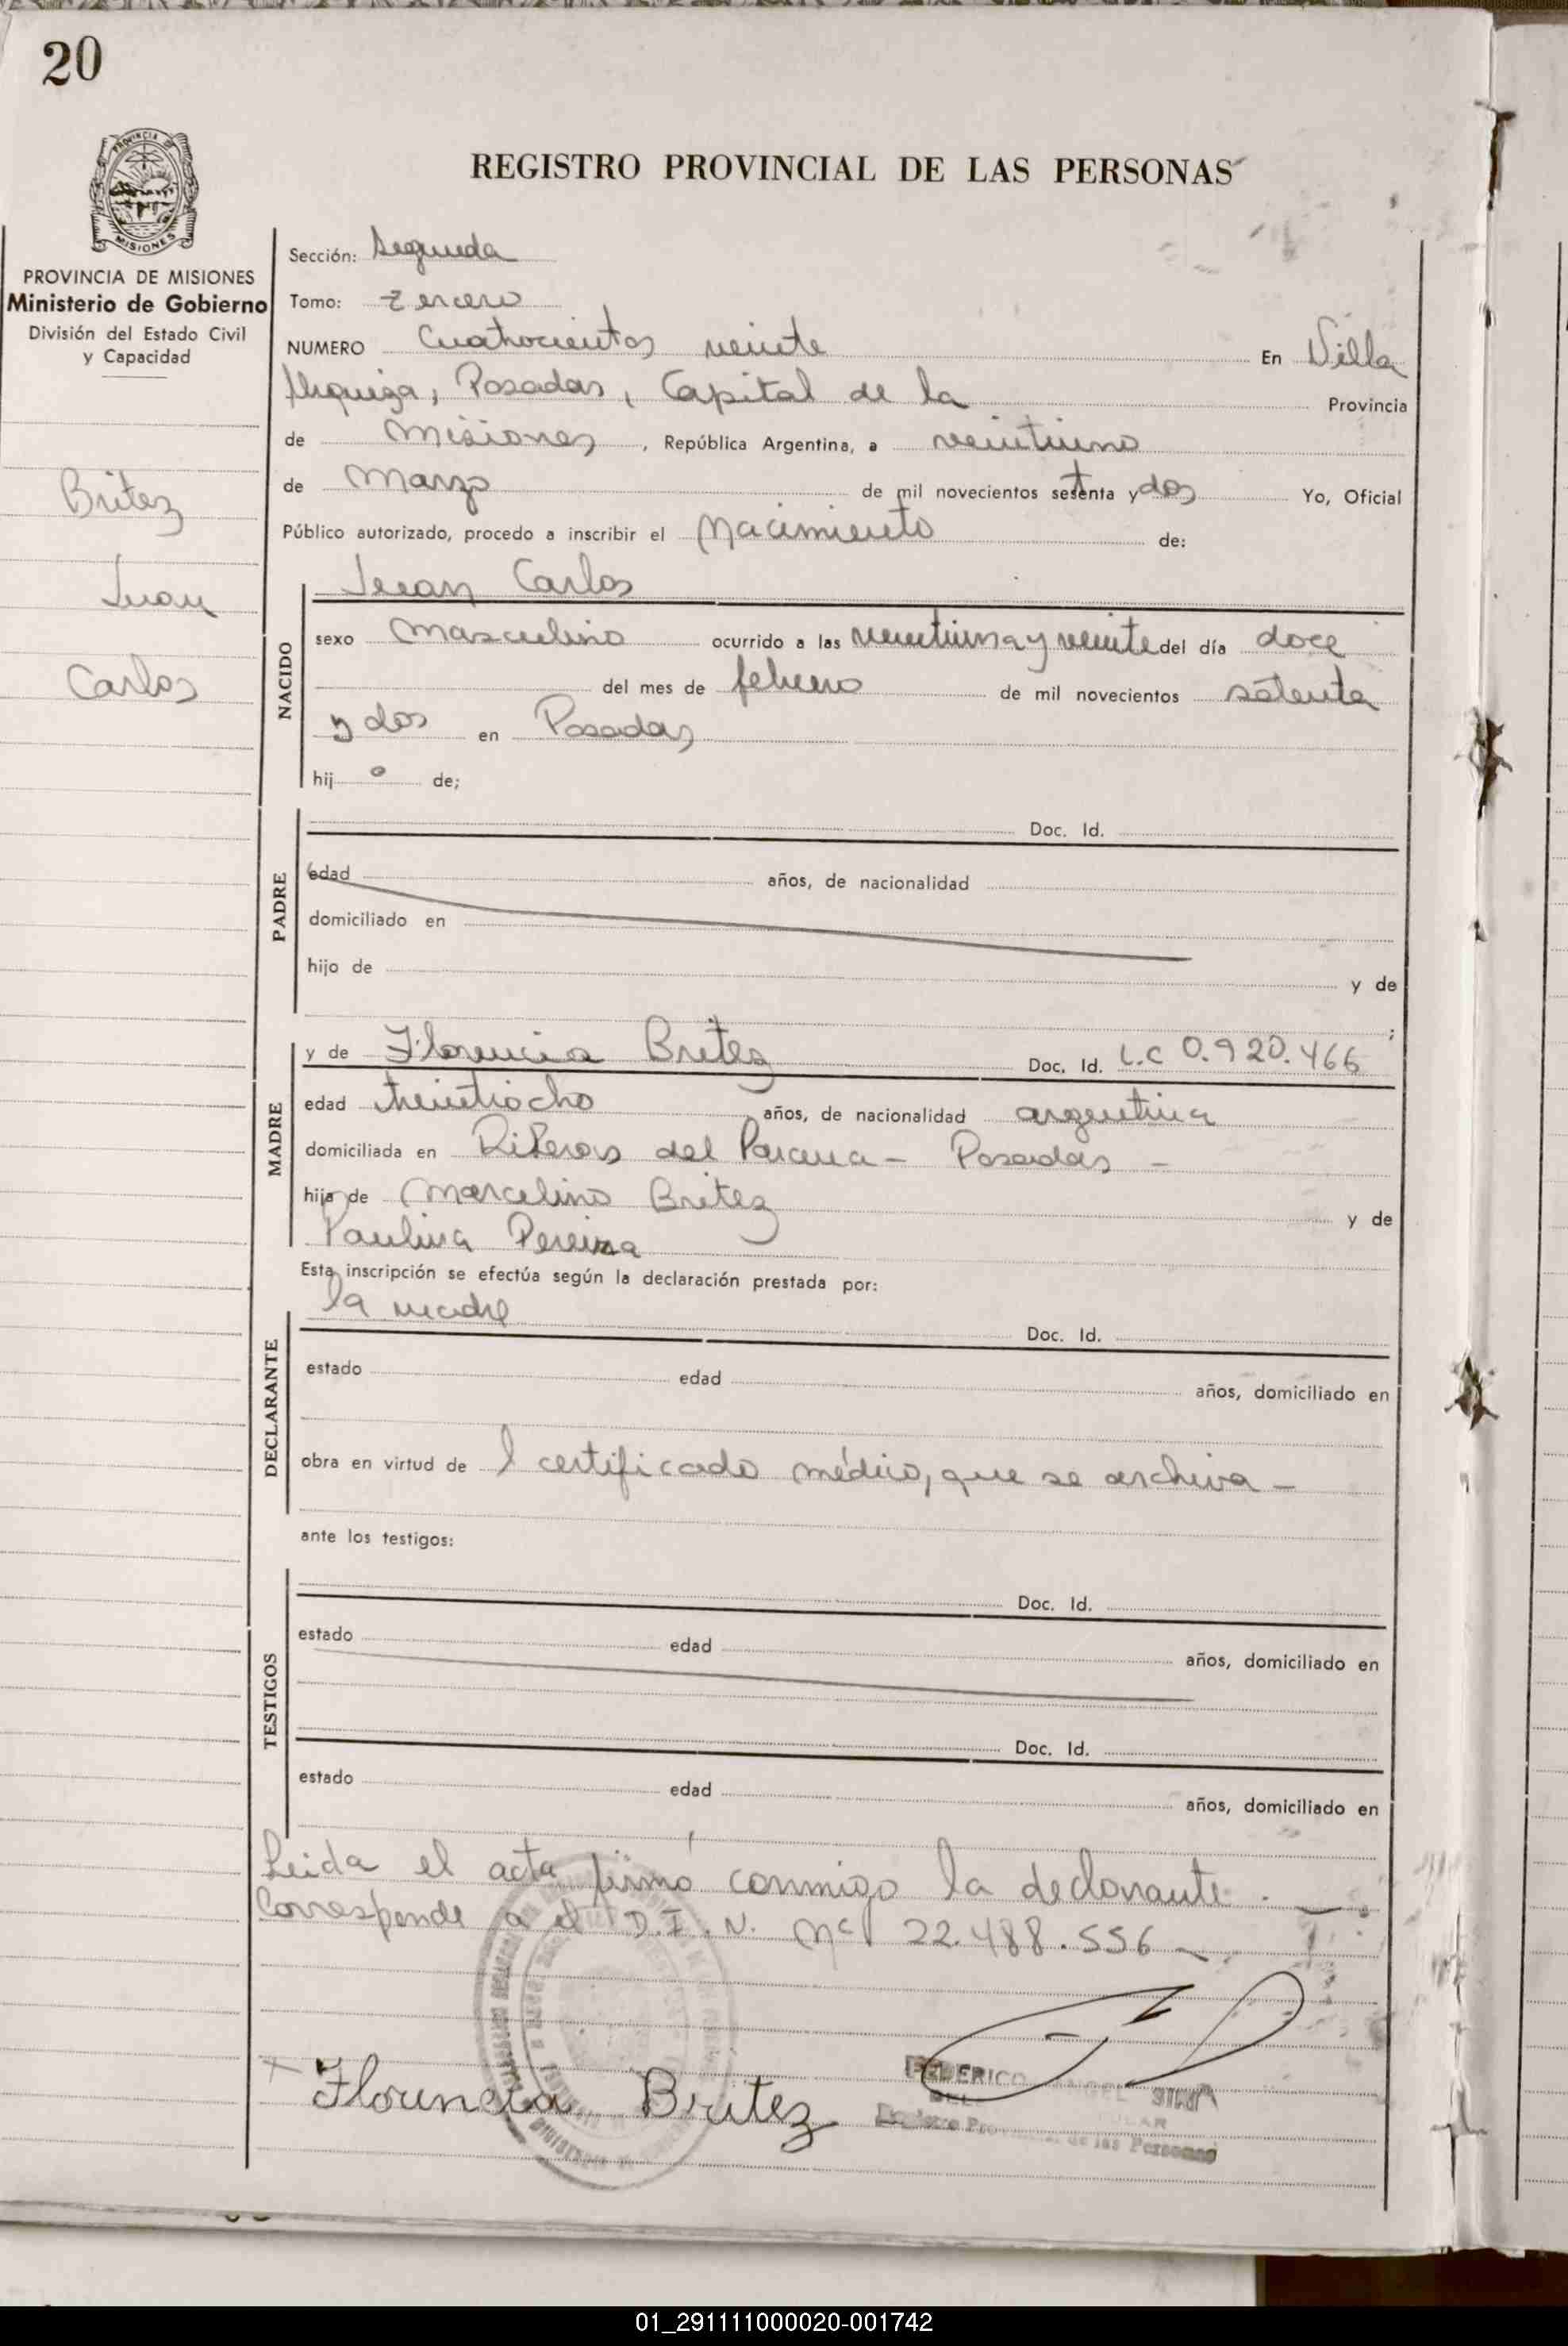 20
PROVINCIA
MISIONES
PROVINCIA DE MISIONES
Ministerio de Gobierno
División del Estado Civil
y Capacidad
Britez
Juan
Carlos
REGISTRO PROVINCIAL DE LAS PERSONAS
Sección: Segunda
Tomo: Tercero
NUMERO Cuatrocientos veinte En Villa
Urquiza, Posadas, Capital de la Provincia
de Misiones, República Argentina, a veintiuno
de Marzo de mil novecientos setenta y dos Yo, Oficial
Público autorizado, procedo a inscribir el Nacimiento de:
NACIDO
Juan Carlos
sexo Masculino ocurrido a las veintiuna y veinte del día doce
del mes de febrero de mil novecientos setenta
y dos en Posadas
hij o de;
PADRE
Doc. Id.
edad años, de nacionalidad
domiciliado en
hijo de y de
;
MADRE
y de Florencia Britez Doc. Id. L.C 0.920.466
edad treintiocho años, de nacionalidad argentina
domiciliada en Riberas del Parana - Posadas -
hija de Marcelino Britez y de
Paulina Pereira
Esta inscripción se efectúa según la declaración prestada por:
DECLARANTE
la madre Doc. Id.
estado edad años, domiciliado en
obra en virtud de l certificado médico, que se archiva -
ante los testigos:
TESTIGOS
Doc. Id.
estado edad años, domiciliado en
Doc. Id.
estado edad años, domiciliado en
Leida el acta firmó conmigo la declarante.
Corresponde a el D.I.N. Nº 22.488.556 -
Florencia Britez
FEDERICO
Registro Provincial de las Personas
01_291111000020-001742